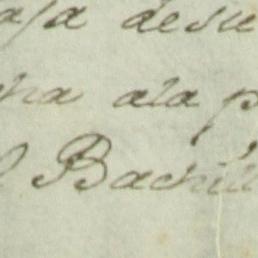 aja desu
na ala p
l Bachill